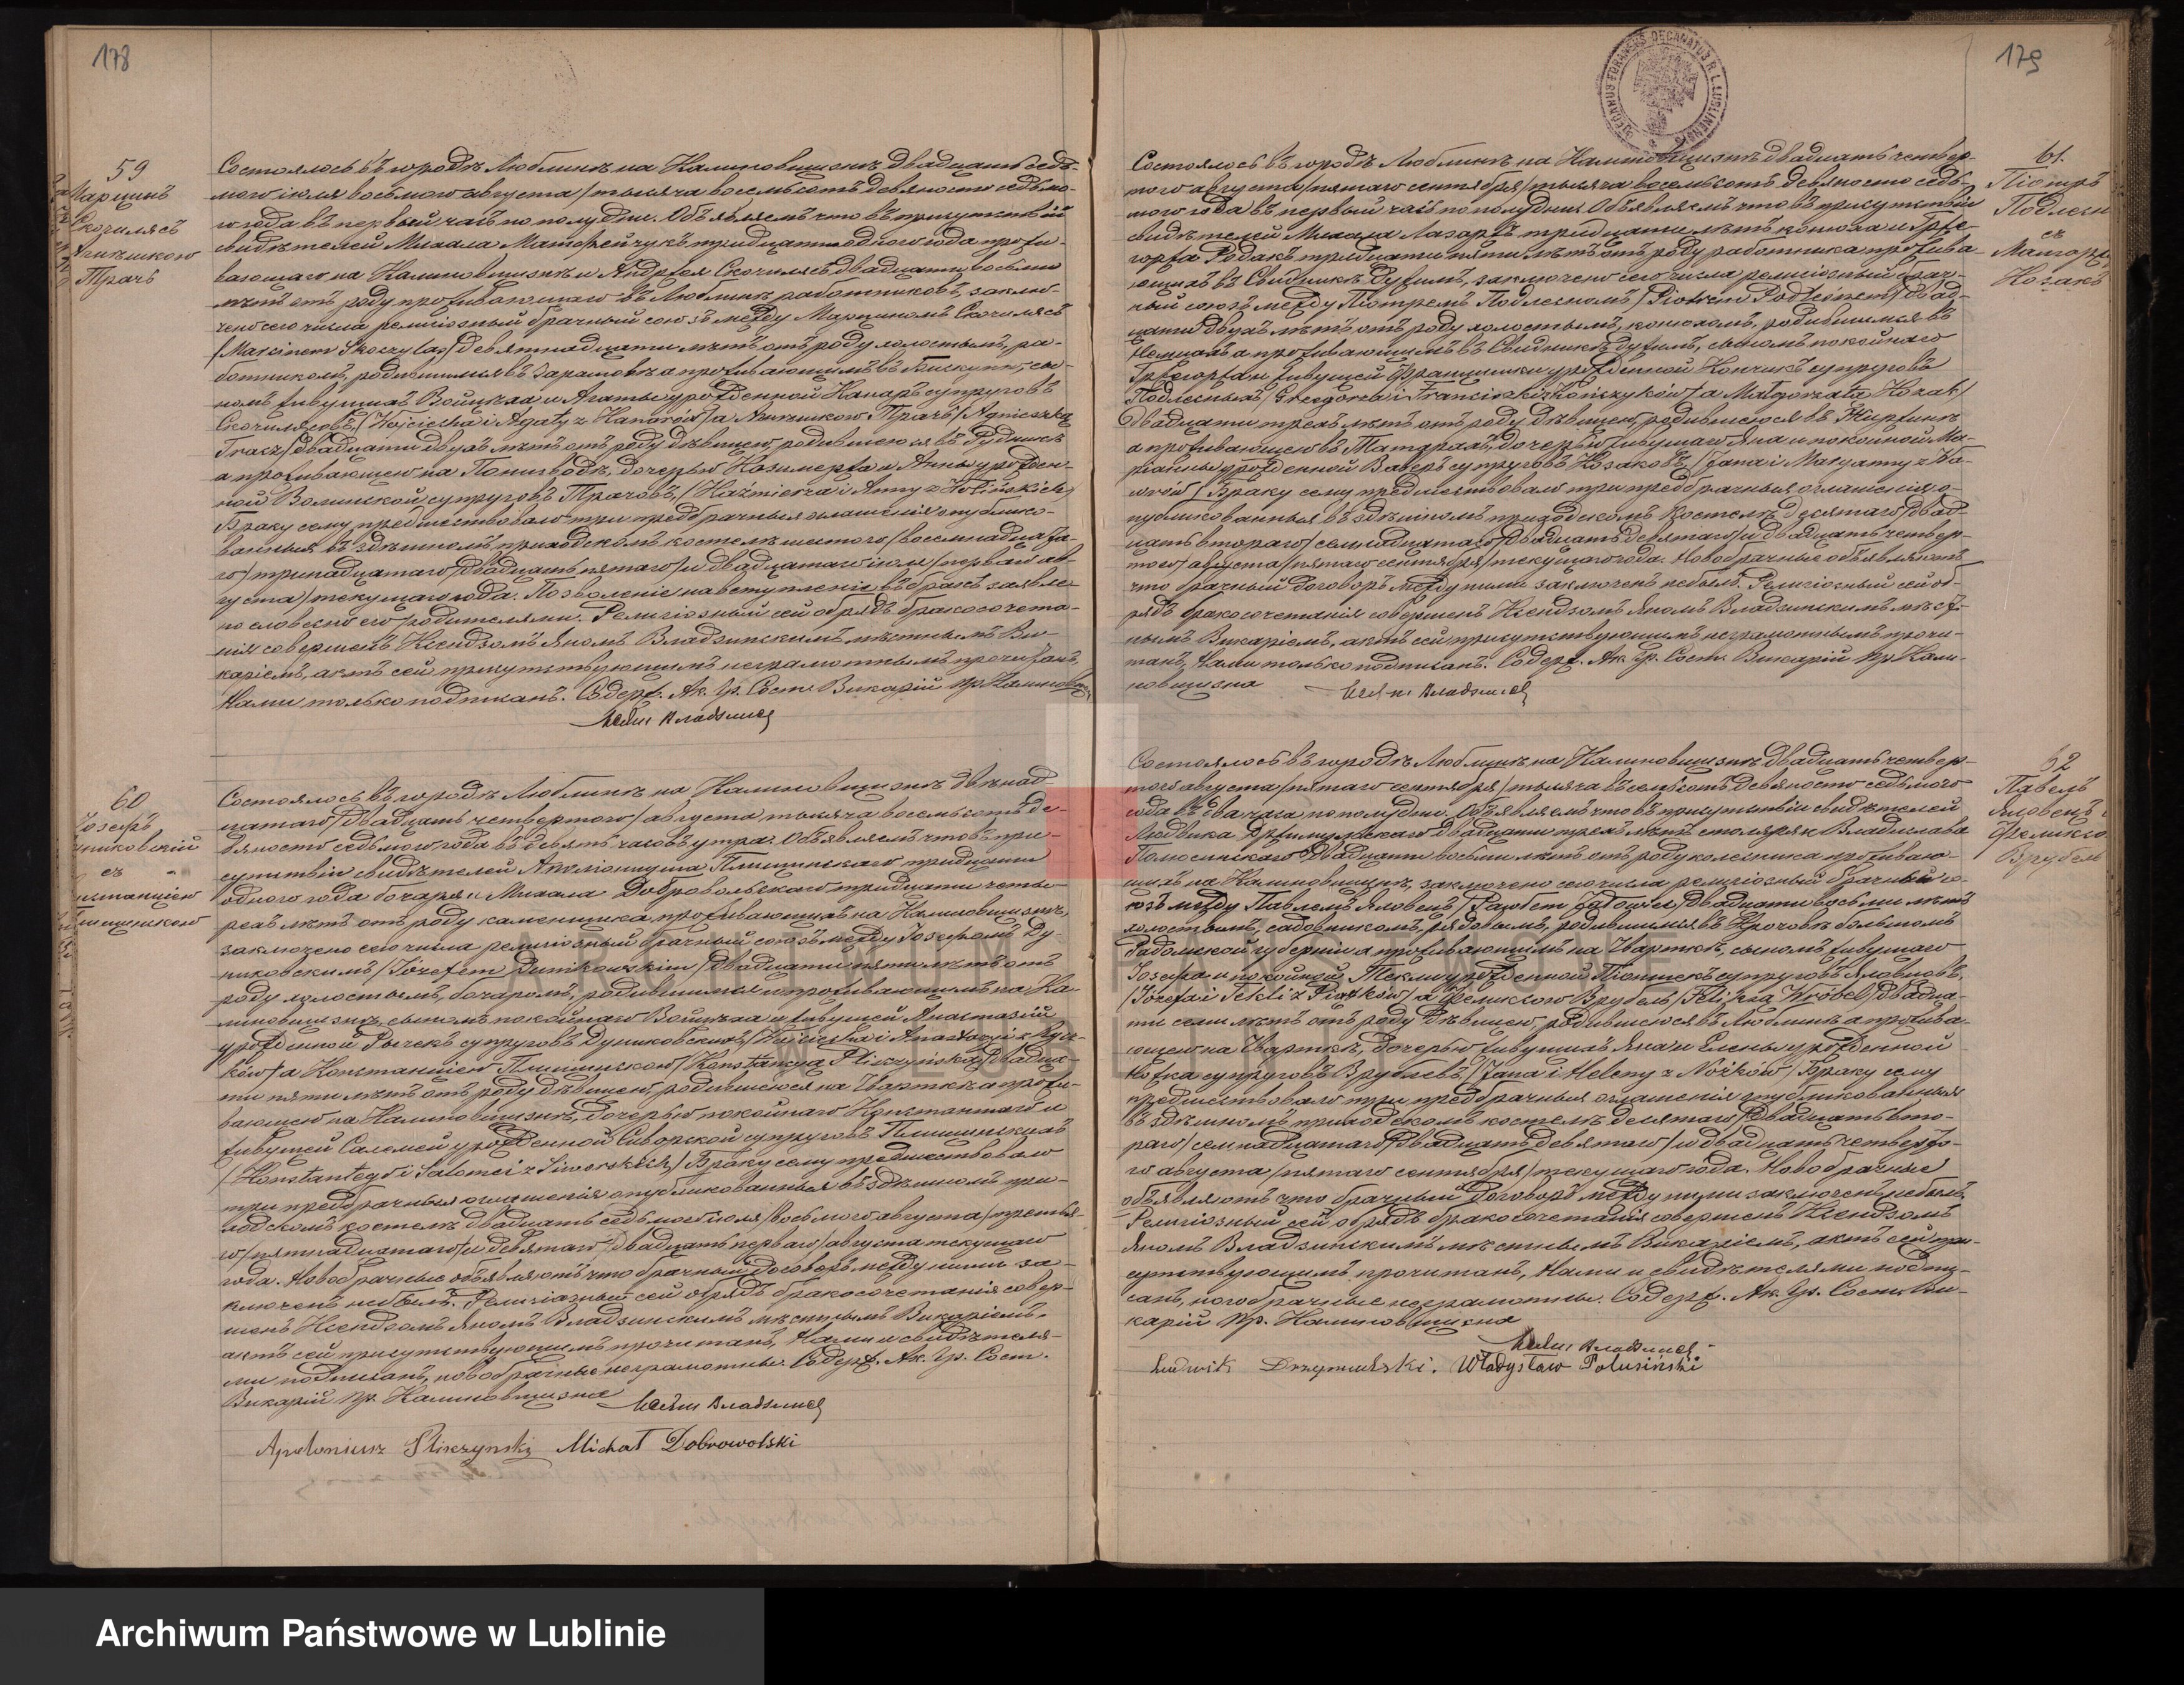 178
59
Марцинъ
Скочилясъ
Агнѣшкою
Трачъ
Состоялось въ городѣ Люблинѣ на Калиновщизнѣ двадцать седь-
мого іюля /восьмого августа/ тысяча восемьсотъ девяносто седьмо-
го года въ первый часъ по полудни. Объявляемъ что въ присутствіи
свидѣтелей Михала Матфейчукъ тридцати одного года прожи-
вающаго на Калиновщизнѣ и Андрея Скочилясъ двадцати восьми
лѣтъ отъ роду проживающаго въ Люблинѣ работниковъ, заклю-
чено сего числа религіозный брачный союзъ между Марциномъ Скочилясъ
/Marcinem Skoczylas/ девятнадцати лѣтъ отъ роду холостымъ, ра-
ботникомъ, родившимся въ а проживающимъ въ сы-
номъ живущихъ Войцѣха и Агаты урожденной Канаръ супруговъ
Скочилясовъ, /Wojciecha i Agaty z Kanarów/ а Агнѣшкою Трачъ /Agnieszką
Tracz/ двадцати двухъ лѣтъ отъ роду дѣвицею, родившеюся въ Рудникѣ
а проживающею на Понигводѣ, дочерью Казимержа и Анны урожден-
ной Волинской супруговъ Трачовъ, /Kaźmierza i Anny z Wolińskich/
Браку сему предшествовало три предбрачныя оглашенія опублико-
ванныя въ здѣшномъ приходскомъ костелѣ шестого /восемнадцата-
го/ тринадцатаго /двадцать пятаго/ и двадцатаго іюля /перваго ав-
густа/ текущаго года. Позволеніе на вступленіе въ бракъ заявле-
но словесно его родителями. Религіозный сей обрядъ бракосочета-
нія совершенъ Ксендзомъ Яномъ Владзинскимъ мѣстнымъ Ви-
каріемъ, актъ сей присутствующимъ неграмотнымъ прочитанъ,
Нами только подписанъ. Содерж. Ак. Гр. Сост. Викарій пр. Калиновщизна
60
Іозефъ
Дуниковскій
съ
Констанціею
Плищинскою
Состоялось въ городѣ Люблинѣ на Калиновщизнѣ двѣнад-
цатаго /двадцать четвертого/ августа тысяча восемьсотъ де-
вяносто седьмого года въ девять часовъ утра. Объявляемъ что въ при-
сутствіи свидѣтелей Аполонiуша Плищинскаго тридцати
одного года бочаря и Михала Добровольскаго тридцати четы-
рехъ лѣтъ отъ роду каменщика проживающихъ на Калиновщизнѣ,
заключено сего числа религіозный брачный союзъ между Іозефомъ Ду-
никовскимъ /Józefem Dunikowskim/ двадцати пяти лѣтъ отъ
роду холостымъ, бочаромъ, родившимся и проживающимъ на Ка-
линовщизнѣ, сыномъ покойнаго Войцѣха и живущей Анастазіи
урожденной Рычекъ супруговъ Дуниковскихъ, /Wojciecha i Anastazyi z Rycz-
ków/ а Констанціею Плищинскою /Konstancyą Pliszczyńską/ двадца-
ти пяти лѣтъ отъ роду дѣвицею, родившеюся на Чварткѣ а прожи-
вающею на Калиновщизнѣ, дочерью покойнаго Константаго и
живущей Саломеи урожденной Сиворской супруговъ Плищинскихъ
/Konstantego i Salomei z Siworskich/ Браку сему предшествовало
три предбрачныя оглашенія опубликованныя въ здѣшномъ при-
ходскомъ костелѣ двадцать седьмого іюля /восьмого августа/ третья-
го /пятнадцатаго/ и девятаго /двадцать перваго/ августа текущаго
года. Новобрачные объявляютъ что брачный договоръ между ними за-
ключенъ небылъ. Религіозный сей обрядъ бракосочетанія совер-
шенъ Ксендзомъ Яномъ Владзинскимъ мѣстнымъ Викаріемъ,
актъ сей присутствующимъ прочитанъ, Нами и свидѣтеля-
ми подписанъ, новобрачные неграмотны. Содерж. Ак. Гр. Сост.
Викарій пр. Калиновщизна
Apoloniusz Pliszczyński Michał Dobrowolski
179
61.
Піотръ
Подлесны
съ
Малгоржатою
Козакъ
Состоялось въ городѣ Люблинѣ на Калиновщизнѣ двадцать четвер-
того августа /пятаго сентября/ тысяча восемьсотъ девяносто седь-
мого года въ первый часъ по полудни. Объявляемъ что въ присутствіи
свидѣтелей Михала Лазаръ тридцати лѣтъ конюха и Грже-
горжа Родакъ тридцати пяти лѣтъ отъ роду работника прожива-
ющихъ въ Свидникѣ Дужимъ, заключено сего числа религіозный брач-
ный союзъ между Піотремъ Подлеснымъ /Piotrem Podleśnem/ двад-
цати двухъ лѣтъ отъ роду холостымъ, конюхомъ, родившимся въ
а проживающимъ въ Свидникѣ Дужимъ, сыномъ покойнаго
Гржегоржа и живущей Францишки урожденной Кончикъ супруговъ
Подлесныхъ /Grzegorza i Franciszki z Kończyków/ а Małgorzatą Kozak/
двадцати трехъ лѣтъ отъ роду дѣвицею, родившеюся въ
а проживающею въ Татарахъ, дочерью живущаго Яна и покойной Ма-
ріанны урожденной Ваверъ супруговъ Козаковъ, /Jana i Maryanny z Wa-
wrów/ Браку сему предшествовало три предбрачныя оглашенія о-
публикованныя въ здѣшномъ приходскомъ костелѣ десятаго /двад-
цать второго/ семнадцатаго /двадцать девятаго/ и двадцать четвер-
того августа /пятаго сентября/ текущаго года. Новобрачные объявляютъ
что брачный договоръ между ними заключенъ небылъ. Религіозный сей об-
рядъ бракосочетанія совершенъ Ксендзомъ Яномъ Владзинскимъ мѣст-
нымъ Викаріемъ, актъ сей присутствующимъ неграмотнымъ прочи-
танъ, Нами только подписанъ. Содерж. Ак. Гр. Сост. Викарій пр. Кали-
новщизна
62
Павелъ
Яловецъ
Феликсою
Врубель
Состоялось въ городѣ Люблинѣ на Калиновщизнѣ двадцать четвер-
того августа /пятаго сентября/ тысяча восемьсотъ девяносто седьмого
года въ два часа по полудни. Объявляемъ что въ присутствіи свидѣтелей
Людвика Држимульскаго двадцати трехъ лѣтъ столяря и Владислава
Полюсинскаго двадцати восьми лѣтъ отъ роду колесника проживаю-
щихъ на Калиновщизнѣ, заключено сего числа религіозный брачный со-
юзъ между Павлемъ Яловецъ /Pawłem Jałowiec/ двадцати восьми лѣтъ
холостымъ, садовникомъ, рядовымъ, родившимся въ Крочовѣ большомъ
Радомской губерніи а проживающимъ на Чварткѣ, сыномъ живущаго
Іозефа и покойной Текли урожденной Піонтекъ супруговъ Яловцовъ,
/Józefa i Tekli z Piątków/ а Феликсою Врубель /Feliksą Wróbel/ двадца-
ти семи лѣтъ отъ роду дѣвицею, родившеюся въ Люблинѣ а прожива-
ющею на Чварткѣ, дочерью живущихъ Яна и Елены урожденной
Ножка супруговъ Врублевъ /Jana i Heleny z Nóżków/ Браку сему
предшествовало три предбрачныя оглашенія опубликованныя
въ здѣшномъ приходскомъ костелѣ десятаго /двадцать вто-
раго/ семнадцатаго /двадцать девятаго/ и двадцать четверто-
го августа /пятаго сентября/ текущаго года. Новобрачные
объявляютъ что брачный договоръ между ними заключенъ небылъ.
Религіозный сей обрядъ бракосочетанія совершенъ Ксендзомъ
Яномъ Владзинскимъ мѣстнымъ Викаріемъ, актъ сей при-
сутствующимъ прочитанъ, Нами и свидѣтелями подпи-
санъ, новобрачные неграмотны. Содерж. Ак. Гр. Сост. Ви-
карій пр. Калиновщизна
Ludwik Drzymulski. Władysław Polusiński
ARCHIWUM PAŃSTWOWE
W LUBLINIE
Archiwum Państwowe w Lublinie